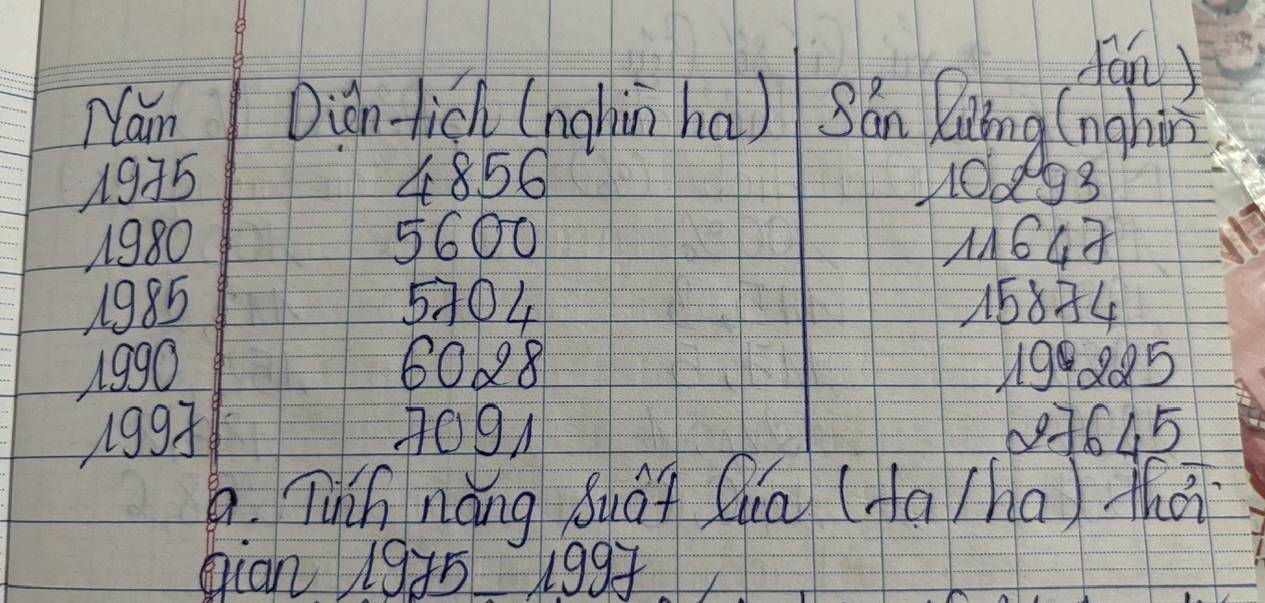 tấn)
Năm Diện tích (nghìn ha) Sản lượng (nghìn
1975 4856 10293
1980 5600 11647
1985 5704 15874
1990 6028 19225
1997 7091 27645
a. Tính năng suất lúa (tạ/ha) thời
gian 1975_1997